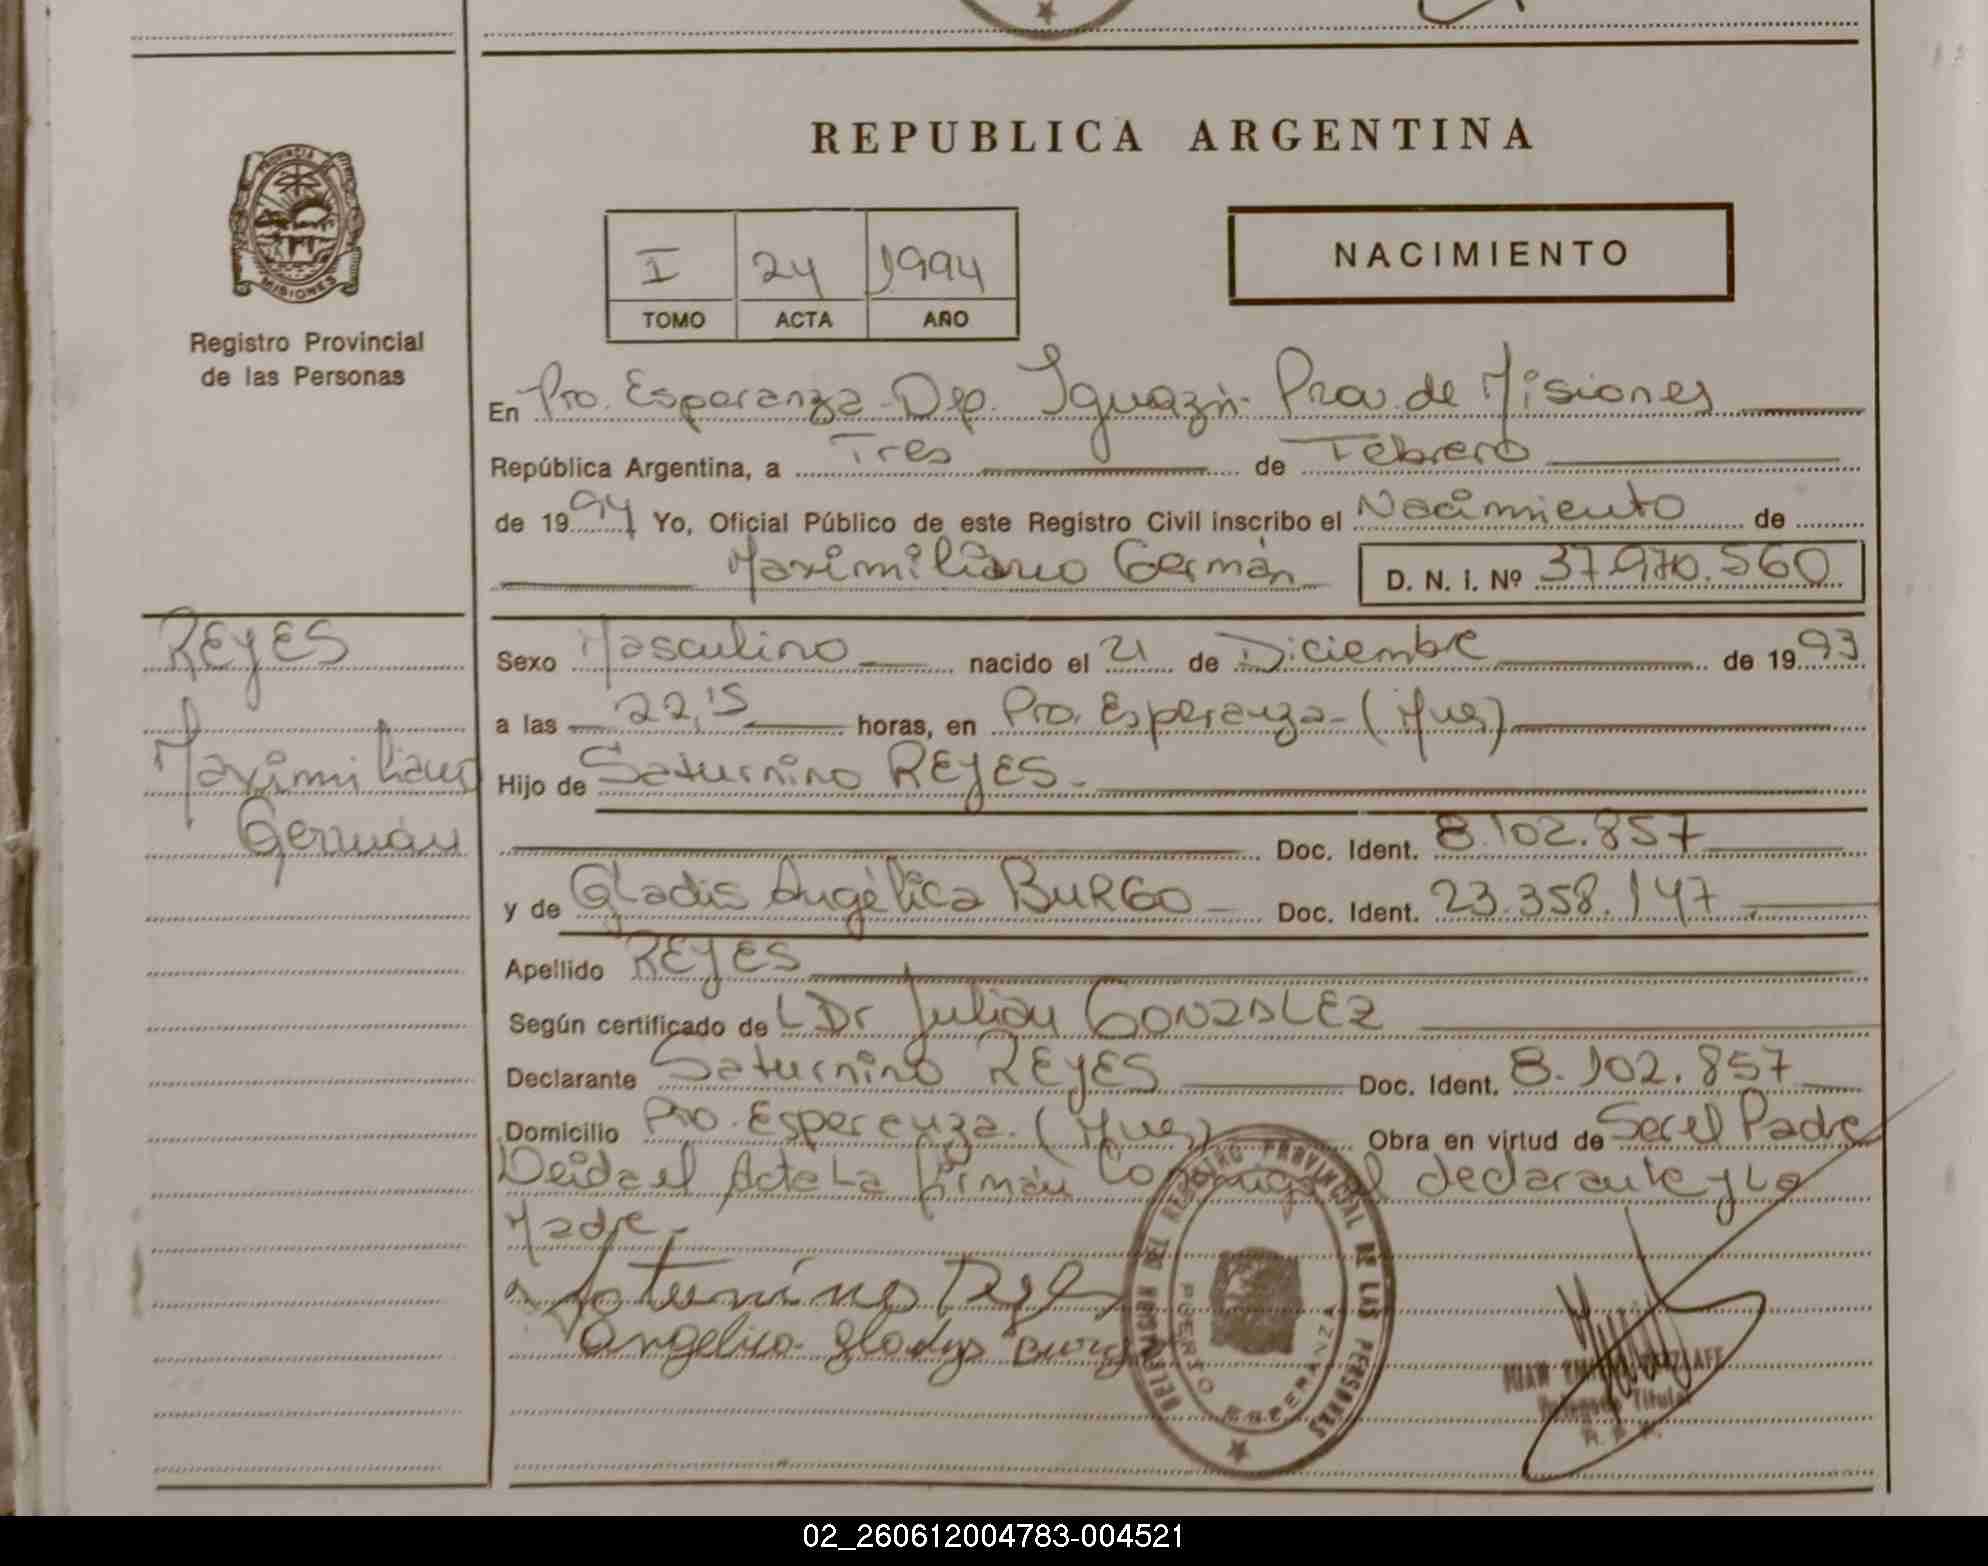 REPUBLICA ARGENTINA
PROVINCIA
MISIONES
Registro Provincial
de las Personas
I 24 1994
TOMO ACTA AÑO
NACIMIENTO
En Pto. Esperanza - Dep. Iguazú - Prov. de Misiones
República Argentina, a Tres de Febrero
de 1994 Yo, Oficial Público de este Registro Civil inscribo el Nacimiento de
Maximiliano Germán D. N. I. Nº 37.970.560
REYES
Maximiliano
Germán
Sexo Masculino nacido el 21 de Diciembre de 1993
a las 22,15 horas, en Pto. Esperanza - (Mnes)
Hijo de Saturnino REYES -
Doc. Ident. 8.102.857
y de Gladis Angélica BURGO - Doc. Ident. 23.358.147
Apellido REYES
Según certificado de L Dr Julián GONZALEZ
Declarante Saturnino REYES Doc. Ident. 8.102.857
Domicilio Pto. Esperanza. (Mnes) Obra en virtud de Ser el Padre
Leida el Acta La firman Conmigo el declarante y La
Madre -
Saturnino Reyes
angelica gladys Burgo
DELEGACION DEL REGISTRO PROVINCIAL DE LAS PERSONAS
PUERTO ESPERANZA
Delegado Titular
R. P. P.
02_260612004783-004521